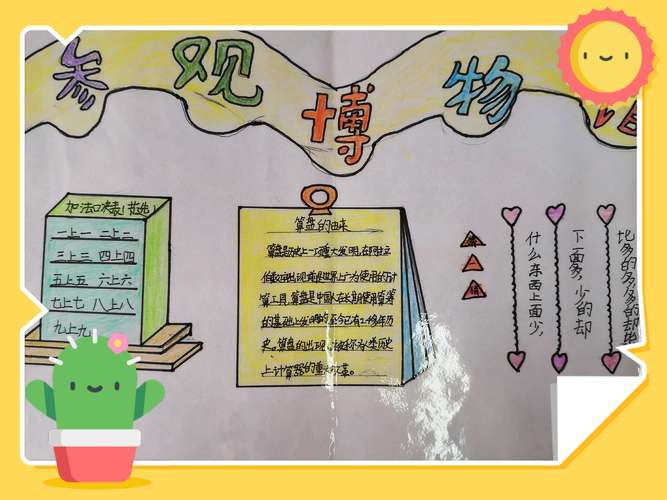 参观博物馆
加法口诀表!首先!
一上一 二上二
三上三 四上四
五上五 六上六
七上七 八上八
九上九
算盘的由来
算盘是历史上一项重大发明,在阿拉
伯数字出现前是世界上广为使用的计
算工具。算盘是中国人在长期使用算筹
的基础上发明的,
史。算盘的出现,被称为人类历史
上计算器的重大改革。
猜一猜
什么东西上面少,
下面多,少的却
比多的多,多的却